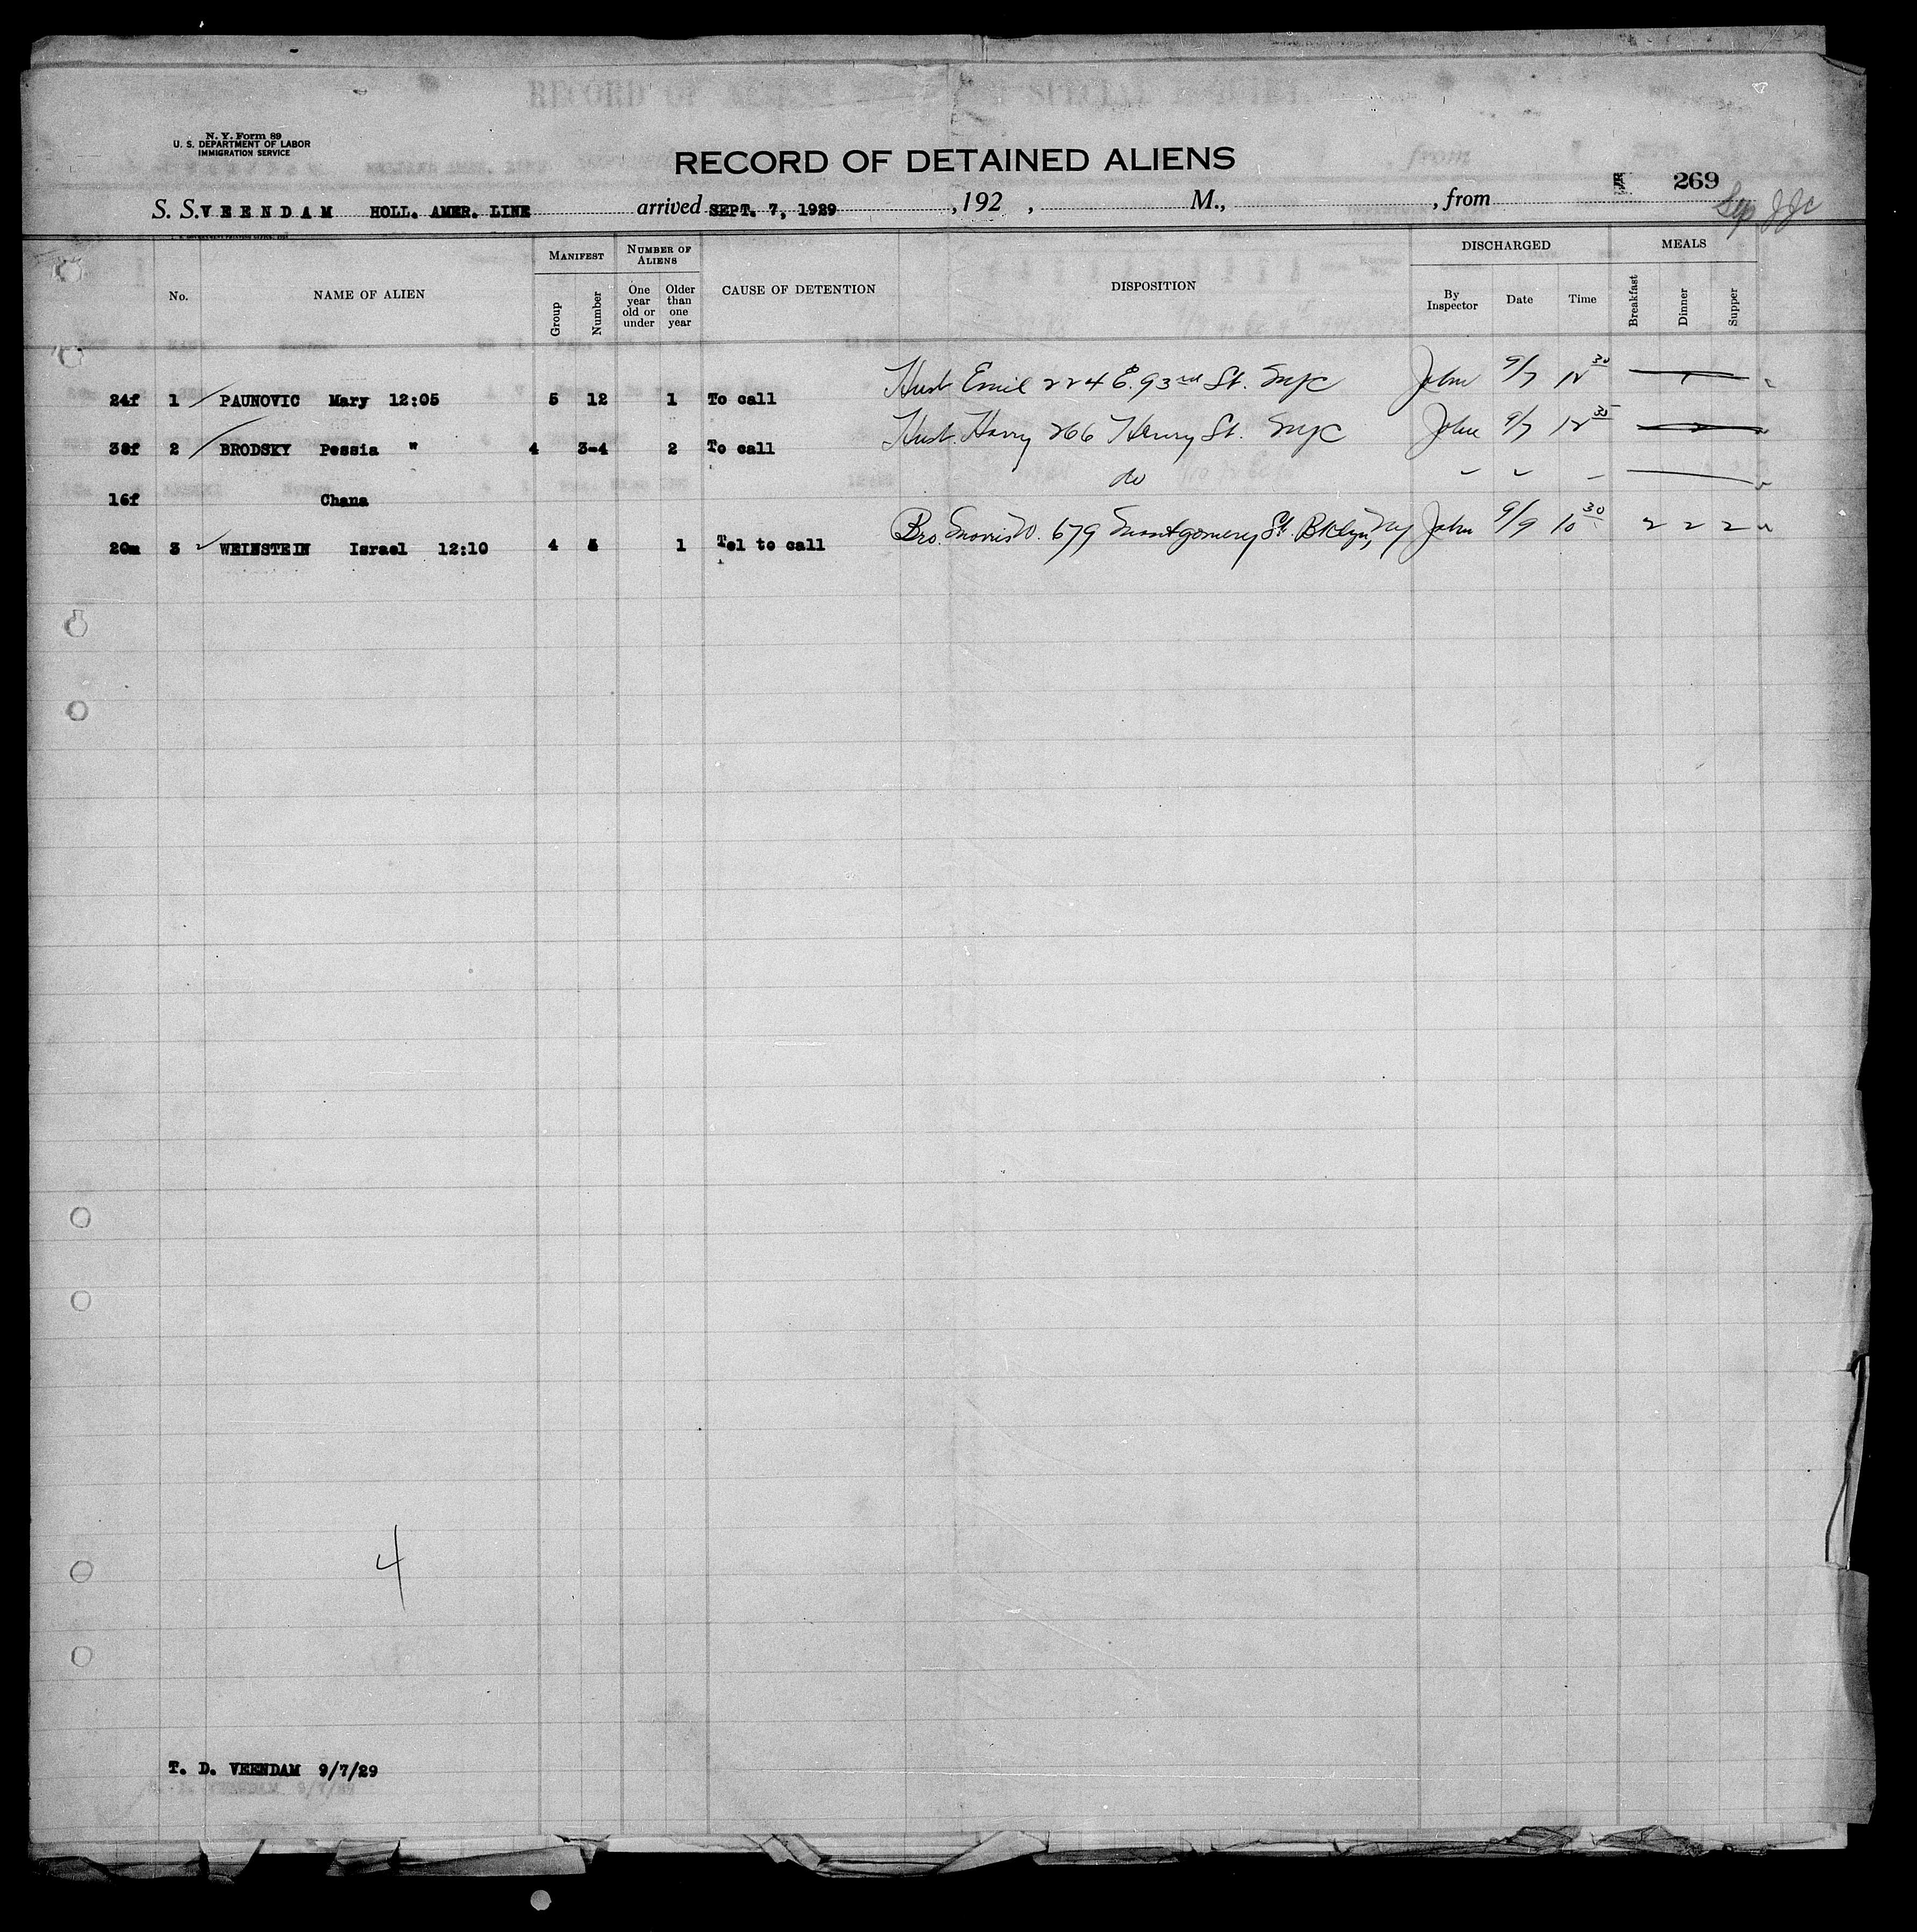 N. Y. Form 89
U. S. DEPARTMENT OF LABOR
IMMIGRATION SERVICE
RECORD OF DETAINED ALIENS
269
S. S. VEENDAM HOLL. AMER. LINE arrived SEPT. 7, 1929 , 192 , M., , from
No. NAME OF ALIEN MANIFEST Group Number NUMBER OF ALIENS One year old or under Older than one year CAUSE OF DETENTION DISPOSITION DISCHARGED By Inspector Date Time MEALS Breakfast Dinner Supper
24f 1 PAUNOVIC Mary 12:05 5 12 1 To call Husb Emil 224 E. 93rd St. NYC John 9/7 12 30
38f 2 BRODSKY Pessia " 4 3-4 2 To call Husb. Harry 266 Henry St. NYC John 9/7 12 35
16f Chana do
20m 3 WEINSTEIN Israel 12:10 4 1 Tel to call Bro. Morris W. 679 Montgomery St. Bklyn, NY John 9/9 10 30 2 2 2
4
T. D. VEENDAM 9/7/29